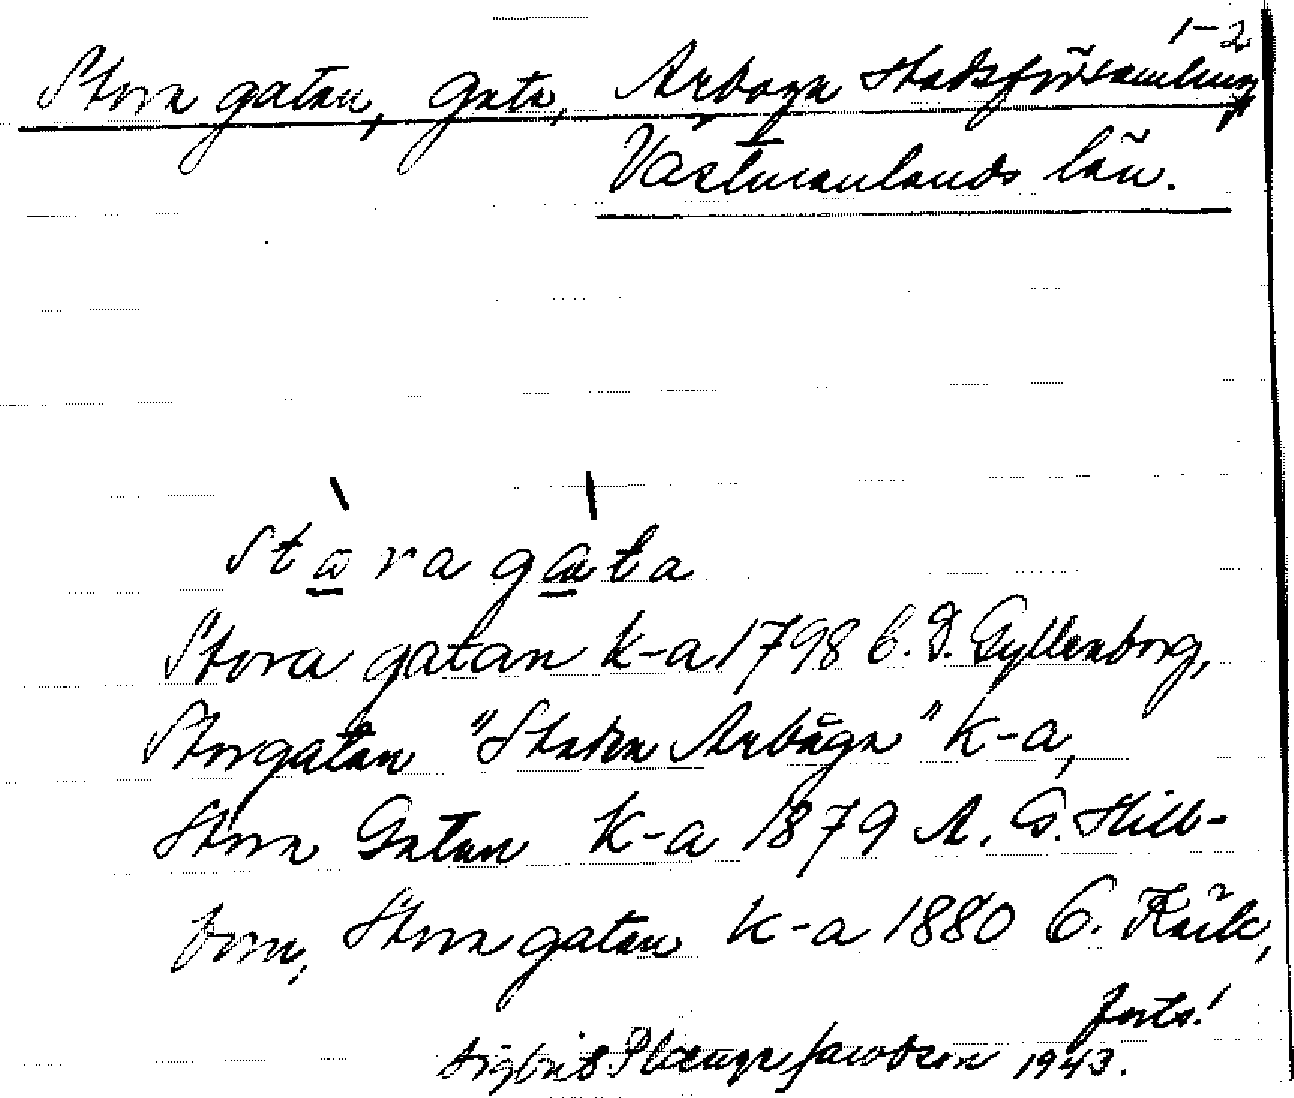 1-2
Stora gatan, Gata, Arboga Stadsförsamling
Västmanlands län.
stòra gàta
Stora gatan k-a 1798 C. D. Gyllenborg,
Storgatan "Staden Arbåga" k-a,
Stora Gatan k-a 1879 A. G. Hill-
bom, Stora gatan k-a 1880 C. Käck,
forts!
Sigbrit Plænge Jacobson 1943.